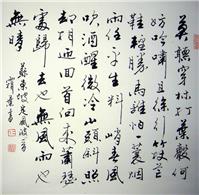 莫聽穿林打葉聲何
妨吟嘯且徐行竹杖芒
鞋輕勝馬誰怕一蓑煙
雨任平生料峭春風
吹酒醒微冷山頭斜照
却相迎回首向來蕭瑟
處歸去也無風雨也
無晴
蘇東坡定風波